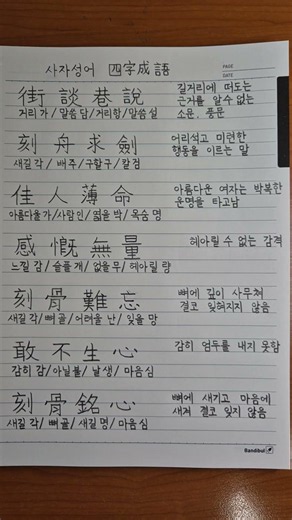 사자성어 四字成語
PAGE
DATE
街談巷說 길거리에 떠도는
근거를 알 수 없는
거리 가 / 말씀 담 / 거리 항 / 말씀 설 소문, 풍문
刻舟求劍 어리석고 미련한
행동을 이르는 말
새길 각 / 배 주 / 구할 구 / 칼 검
佳人薄命 아름다운 여자는 박복한
운명을 타고남
아름다울 가/사람 인/ 엷을 박 / 목숨 명
感慨無量 헤아릴 수 없는 감격
느낄 감 / 슬플 개 / 없을 무 / 헤아릴 량
刻骨難忘 뼈에 깊이 사무쳐
결코 잊혀지지 않음
새길 각 / 뼈 골 / 어려울 난 / 잊을 망
敢不生心 감히 엄두를 내지 못함
감히 감 / 아닐 불 / 날 생 / 마음 심
刻骨銘心 뼈에 새기고 마음에
새겨 결코 잊지 않음
새길 각 / 뼈 골 / 새길 명 / 마음 심
Bandibul